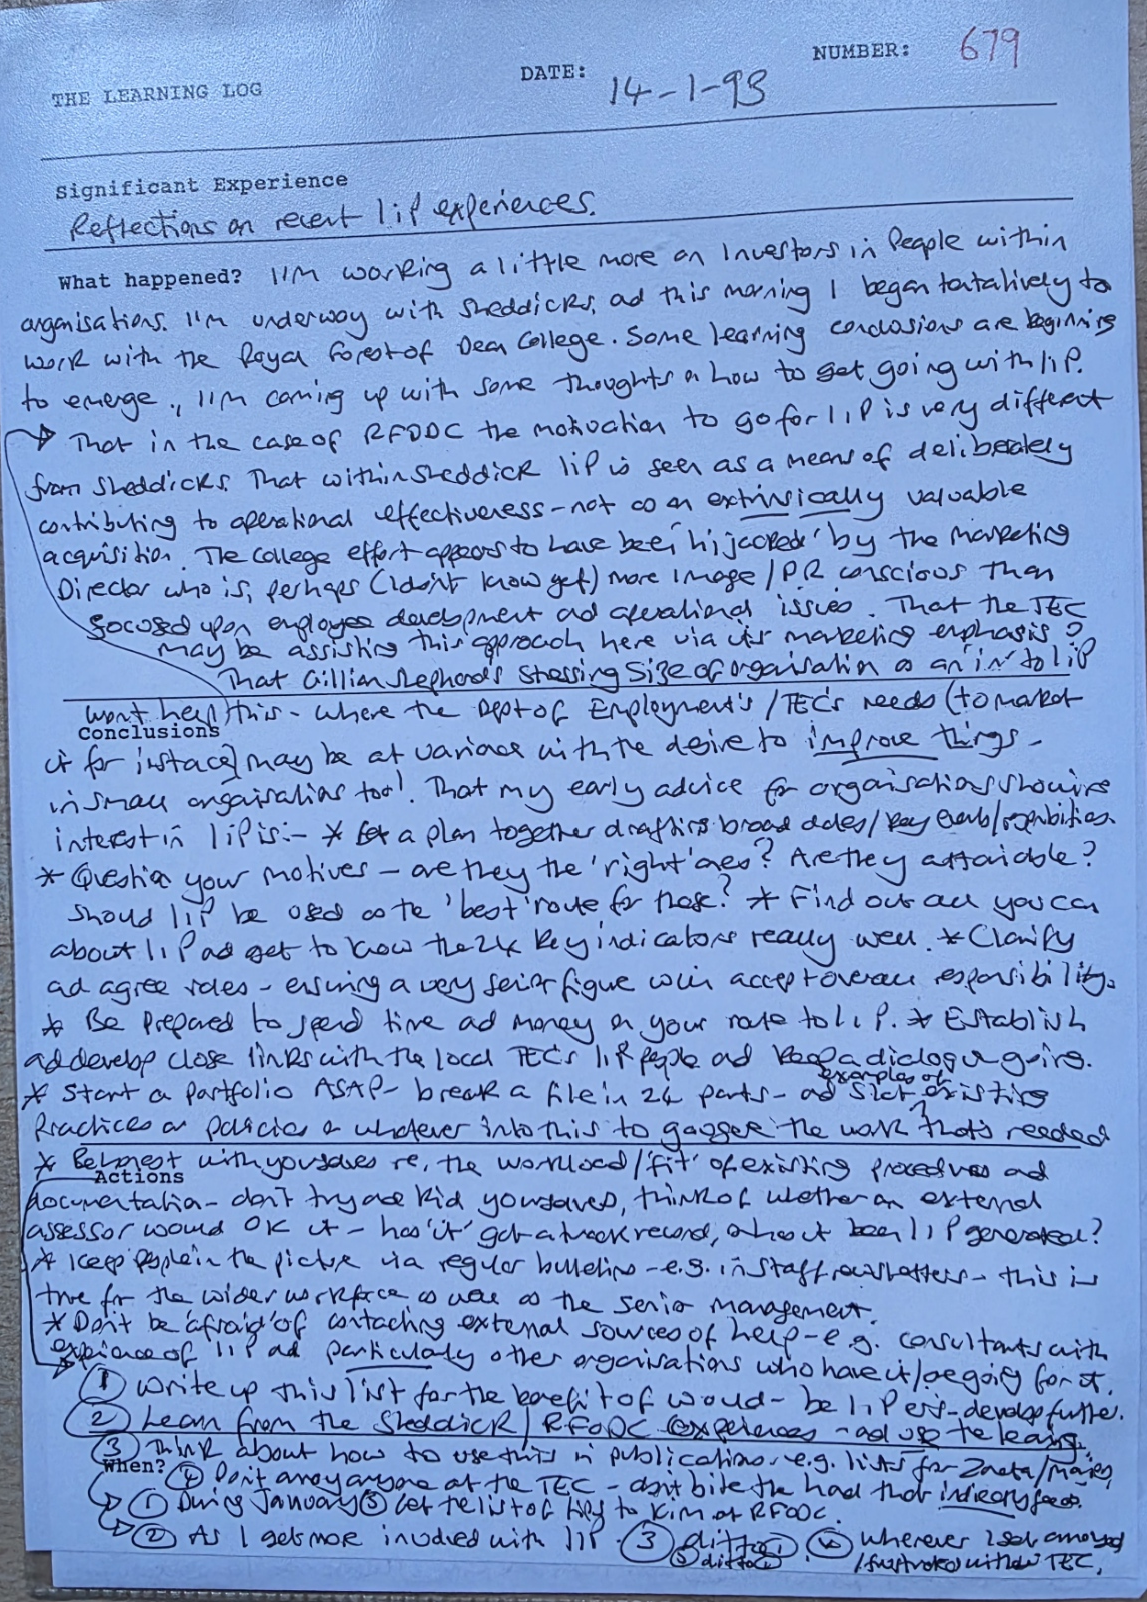 THE LEARNING LOG
DATE: 14-1-93
NUMBER: 679
Significant Experience
Reflections on recent IiP experiences.
What happened? I'm working a little more on Investors in People within
organisations. I'm underway with Sheddicks, ad this morning I began tentatively to
work with the Royal Forest of Dean College. Some learning conclusions are beginning
to emerge., I'm coming up with some thoughts on how to get going with IiP.
That in the case of RFODC the motivation to go for IiP is very different
from Sheddicks. That within Sheddick IiP is seen as a means of deliberately
contributing to operational effectiveness - not as an extrinsically valuable
acquisition. The college effort appears to have been 'hijacked' by the Marketing
Director who is, perhaps (I don't know yet) more image/PR conscious than
focused upon employee development ad operational issues. That the TEC
may be assisting this approach here via its marketing emphasis?
That Gillian Shepherd's stressing size of organisation as an 'in' to IiP
won't help this - where the Dept of Employment's/TEC's needs (to market
Conclusions
it for instance) may be at variance with the desire to improve things -
in small organisations too!. That my early advice for organisations showing
interest in IiP is:- * Get a plan together drafting broad dates/key events/responsibilities.
* Question your motives - are they the 'right' ones? Are they affordable?
Should IiP be used as the 'best' route for these? * Find out all you can
about IiP ad get to know the 24 key indicators really well. * Clarify
ad agree roles - ensuring a very senior figure will accept overall responsibility.
* Be prepared to spend time ad money on your route to IiP. * Establish
ad develop close links with the local TEC's IiP people ad keep a dialogue going.
* Start a portfolio ASAP - break a file in 24 parts - ad slot examples of existing
practices or policies or whatever into this to gauge the work that's needed
* Be honest with yourselves re, the workload/'fit' of existing procedures and
Actions
documentation - don't try and kid yourselves, think of whether an external
assessor would OK it - has 'it' got a track record, or has it been IiP generated?
* Keep people in the picture via regular bulletins - e.g. in staff newsletters - this is
true for the wider workforce as well as the senior management.
* Don't be 'afraid' of contacting external sources of help - e.g. consultants with
experience of IiP ad particularly other organisations who have it/are going for it.
① Write up this list for the benefit of would-be IiPers - develop further.
② Learn from the Sheddick/RFODC experiences - ad use the learning.
③ Think about how to use this in publications. e.g. lists for
When? ④ Don't annoy anyone at the TEC - don't bite the hand that indirectly feeds.
① During January ⑤ Get the list of tips to Kim at RFODC.
② As I get more involved with IiP. ③ ditto ④ Wherever I get annoyed
⑤ ditto /frustrated with the TEC.